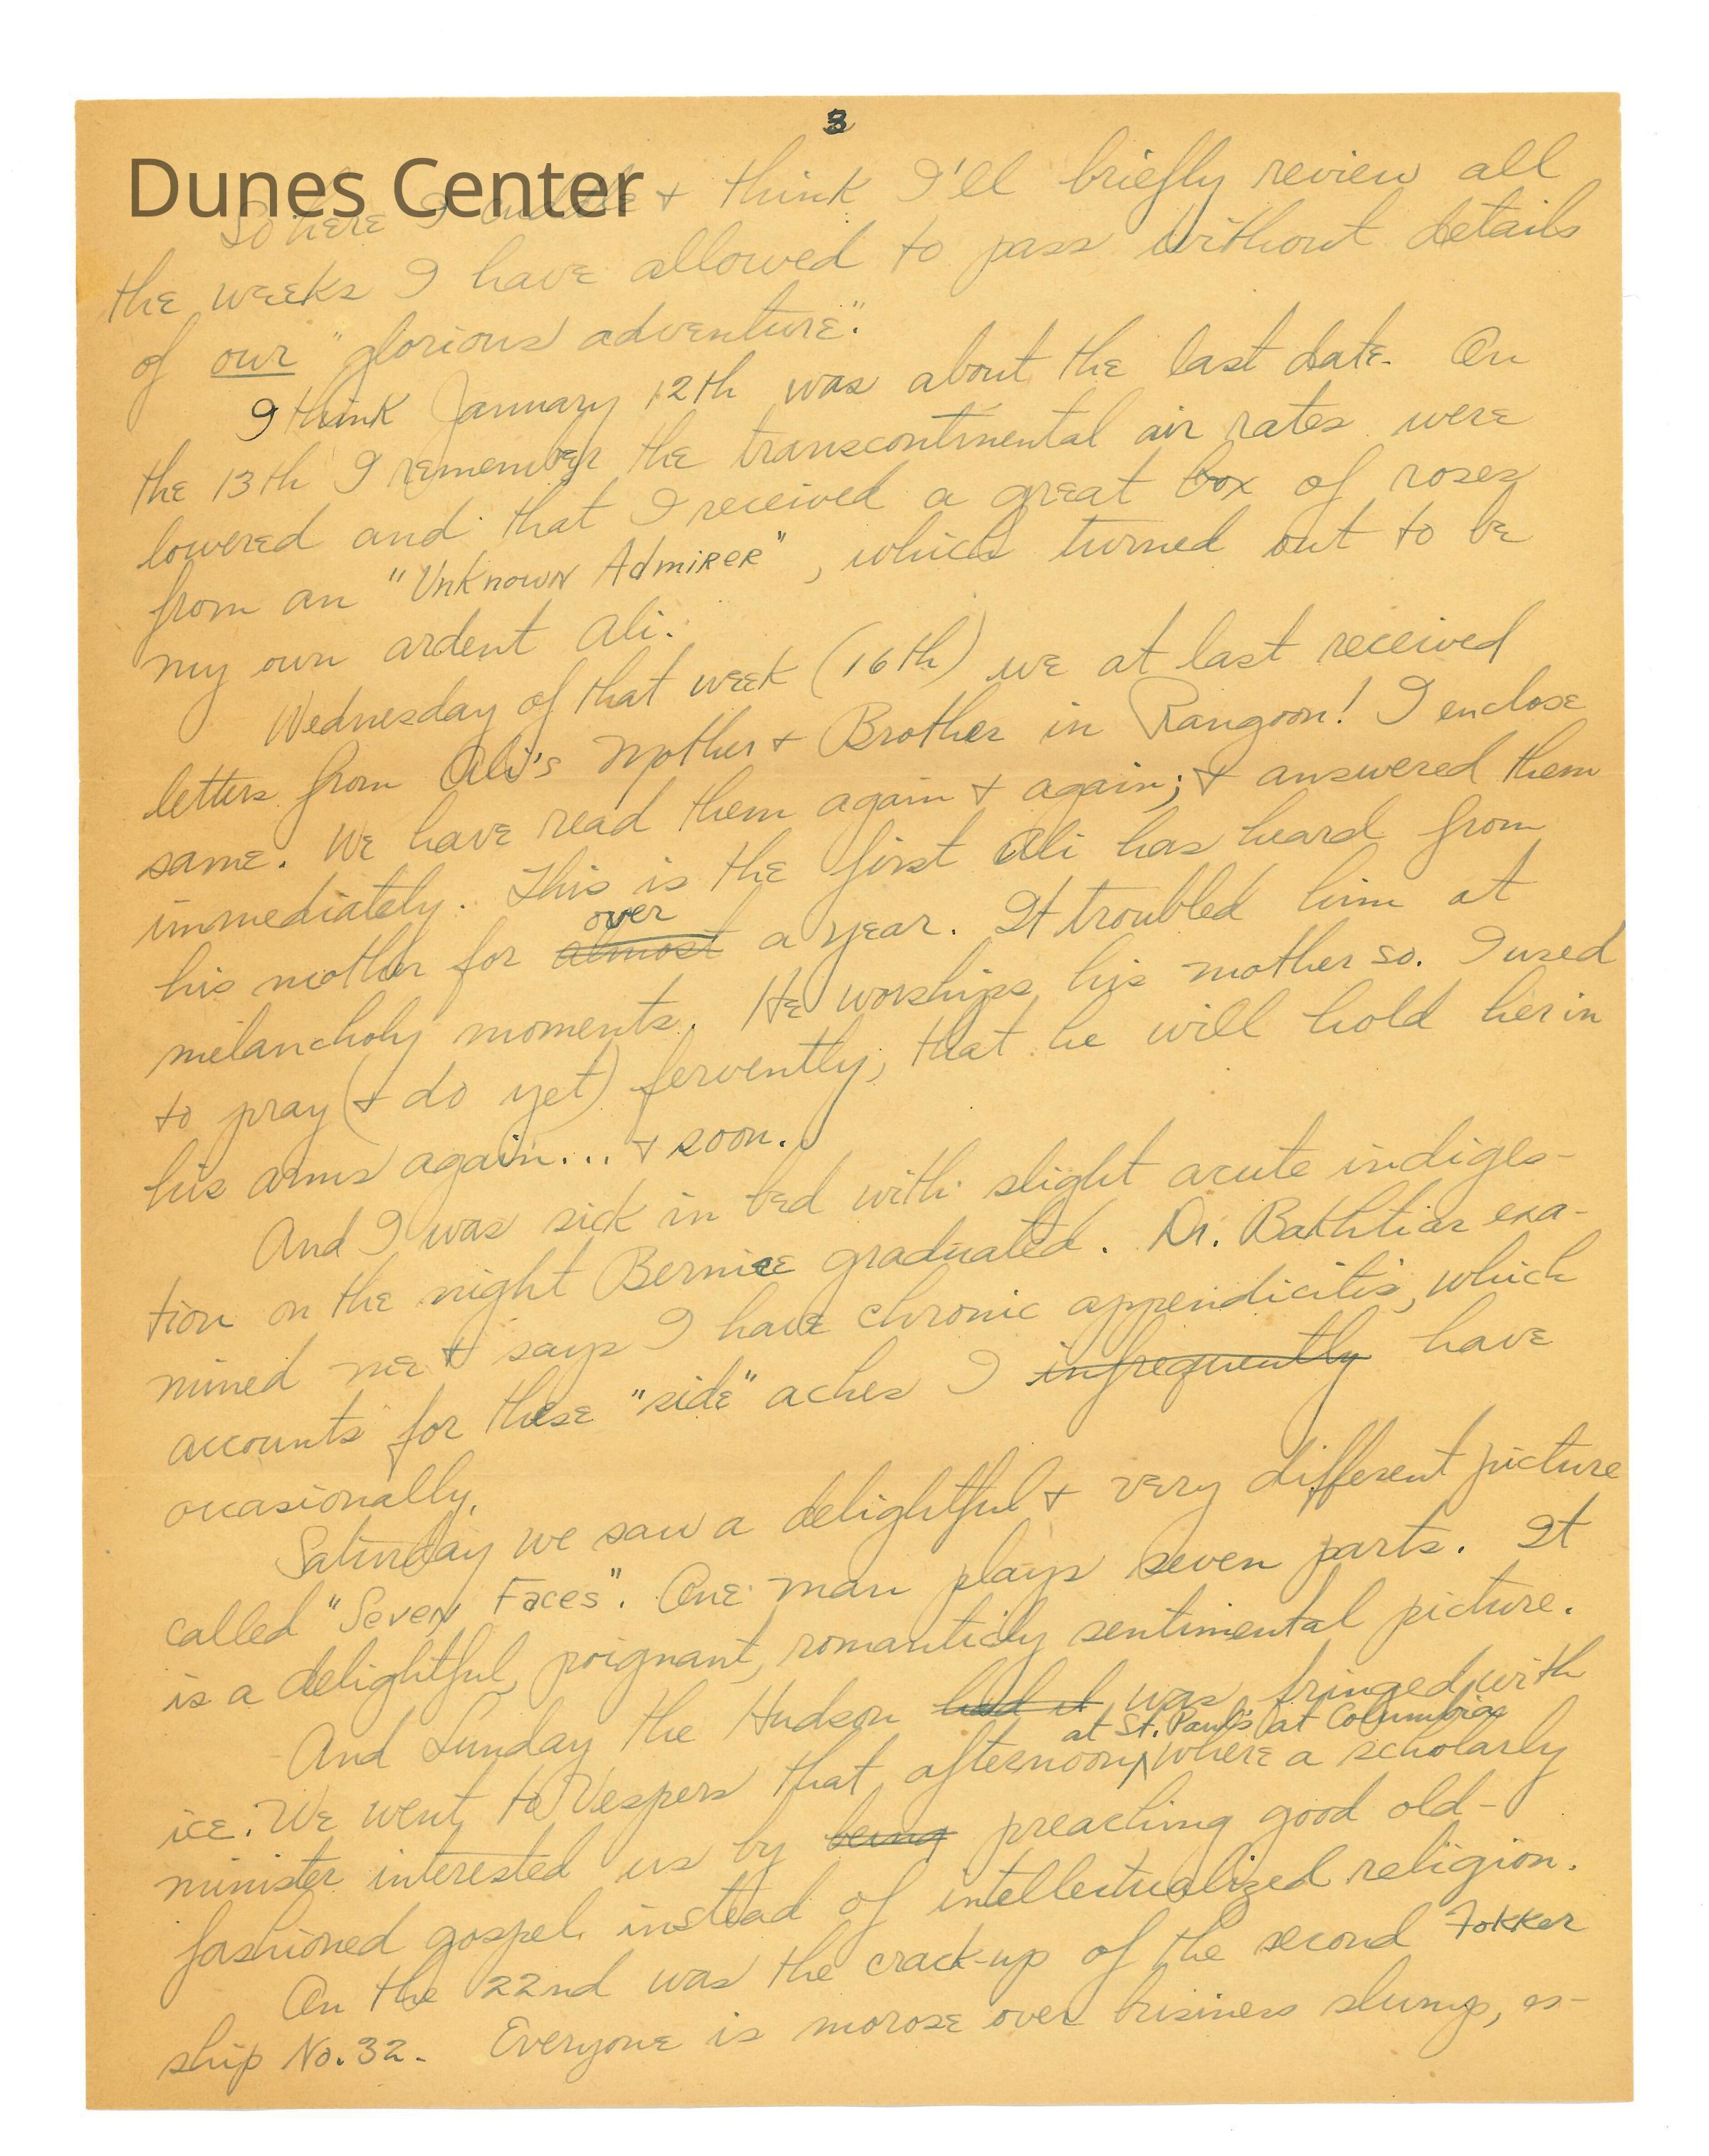 3
Dunes Center
So here I cuddle + think I'll briefly review all
the weeks I have allowed to pass without details
of our "glorious adventure".
I think January 12th was about the last date. On
the 13th I remember the transcontinental air rates were
lowered and that I received a great box of roses
from an "Unknown Admirer", which turned out to be
my own ardent Ali.
Wednesday of that week (16th) we at last received
letters from Ali's Mother + Brother in Rangoon! I enclose
same. We have read them again + again; + answered them
immediately. This is the first Ali has heard from
over
his mother for almost a year. It troubled him at
melancholy moments. He worships his mother so. I used
to pray (+ do yet) fervently, that he will hold her in
his arms again... + soon.
And I was sick in bed with slight acute indiges-
tion on the night Bernice graduated. Dr. Bakhtiar exa-
mined me + says I have chronic appendicitis, which
accounts for these "side" aches I infrequently have
occasionally.
Saturday we saw a delightful + very different picture
called "Seven Faces". One man plays seven parts. It
is a delightful, poignant, romanticly sentimental picture.
And Sunday the Hudson had it was fringed with
at St. Paul's at Columbia
ice. We went to Vespers that afternoon, where a scholarly
minister interested us by being preaching good old-
fashioned gospel instead of intellectualized religion.
On the 22nd was the crack-up of the second Fokker
ship No. 32. Everyone is morose over business slump, es-